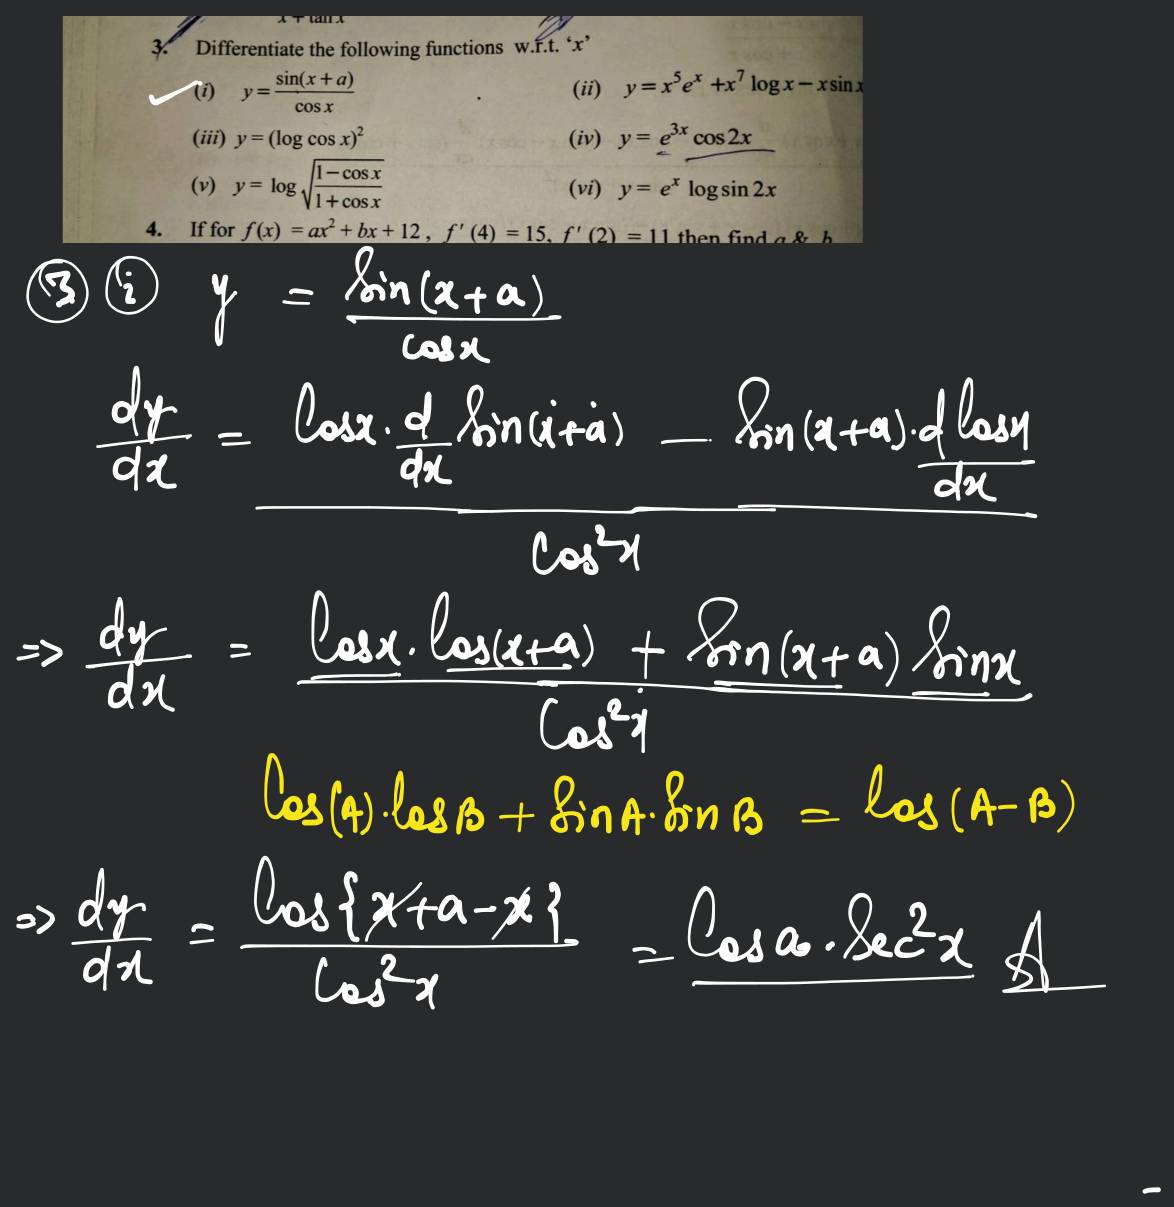 x + tan x
3. Differentiate the following functions w.r.t. ‘x’
(i) y = sin(x + a) / cos x (ii) y = x⁵eˣ + x⁷ log x – x sin x
(iii) y = (log cos x)² (iv) y = e³ˣ cos 2x
(v) y = log √((1 – cos x) / (1 + cos x)) (vi) y = eˣ log sin 2x
4. If for f(x) = ax² + bx + 12, f′(4) = 15, f′(2) = 11 then find a & b
③ ⓘ y = Sin(x+a) / Cosx
dy/dx = (Cosx · d/dx Sin(x+a) – Sin(x+a) · d Cosx/dx) / Cos²x
=> dy/dx = (Cosx · Cos(x+a) + Sin(x+a) Sinx) / Cos²x
Cos(A) · CosB + SinA · SinB = Cos(A–B)
=> dy/dx = Cos{x+a–x} / Cos²x = Cosa · Sec²x A